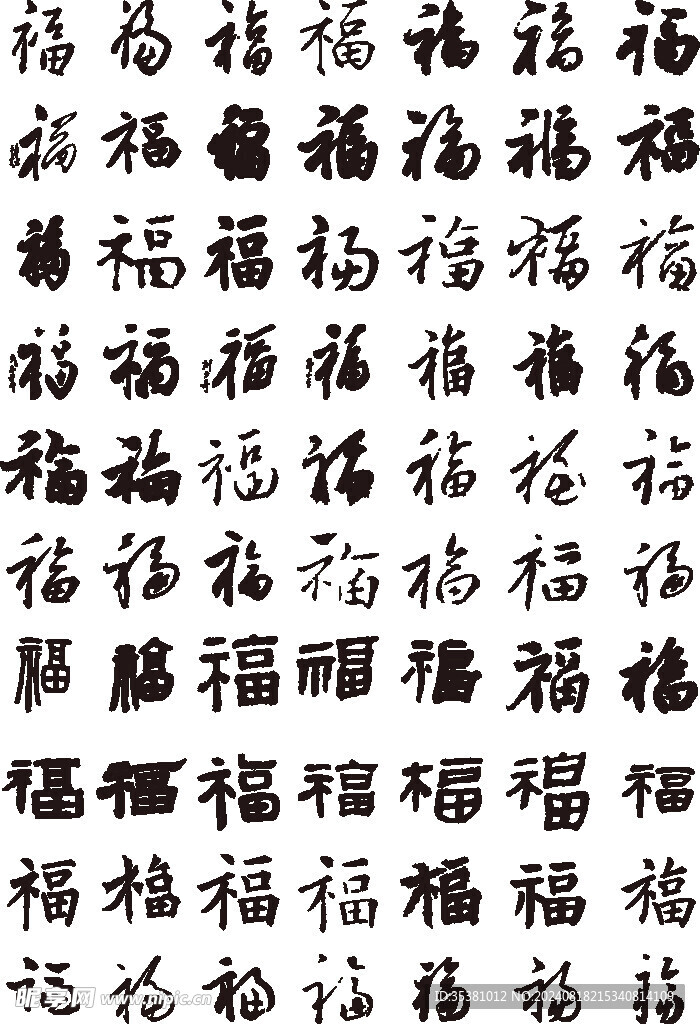 福福福福福福福
福福福福福福福
福福福福福福福
福福福福福福福
福福福福福福福
福福福福福福福
福福福福福福福
福福福福福福福
福福福福福福福
福福福福福福福
昵享网 www.nipic.cn
ID:35381012 NO:20240818215340814109